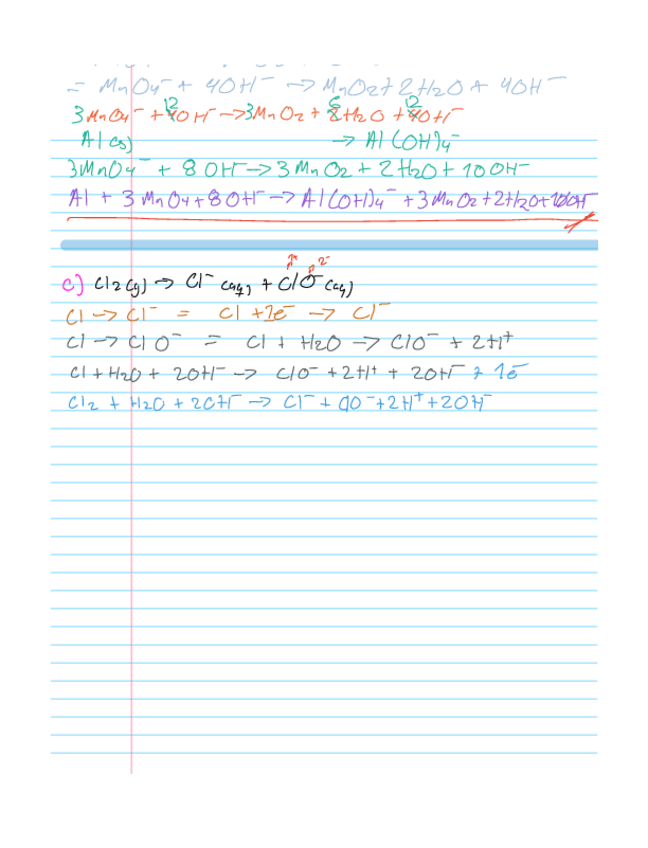 = MnO4⁻ + 4OH⁻ → MnO2 + 2H2O + 4OH⁻
3MnO4⁻ + 12OH⁻ → 3MnO2 + 6H2O + 12OH⁻
Al(s) → Al(OH)4⁻
3MnO4⁻ + 8OH⁻ → 3MnO2 + 2H2O + 10OH⁻
Al + 3MnO4 + 8OH⁻ → Al(OH)4⁻ + 3MnO2 + 2H2O + 10OH⁻
2⁻
c) Cl2(g) → Cl⁻(aq) + ClO⁻(aq)
Cl → Cl⁻ = Cl + 1e⁻ → Cl⁻
Cl → ClO⁻ = Cl + H2O → ClO⁻ + 2H⁺
Cl + H2O + 2OH⁻ → ClO⁻ + 2H⁺ + 2OH⁻ + 1e⁻
Cl2 + H2O + 2OH⁻ → Cl⁻ + ClO⁻ + 2H⁺ + 2OH⁻